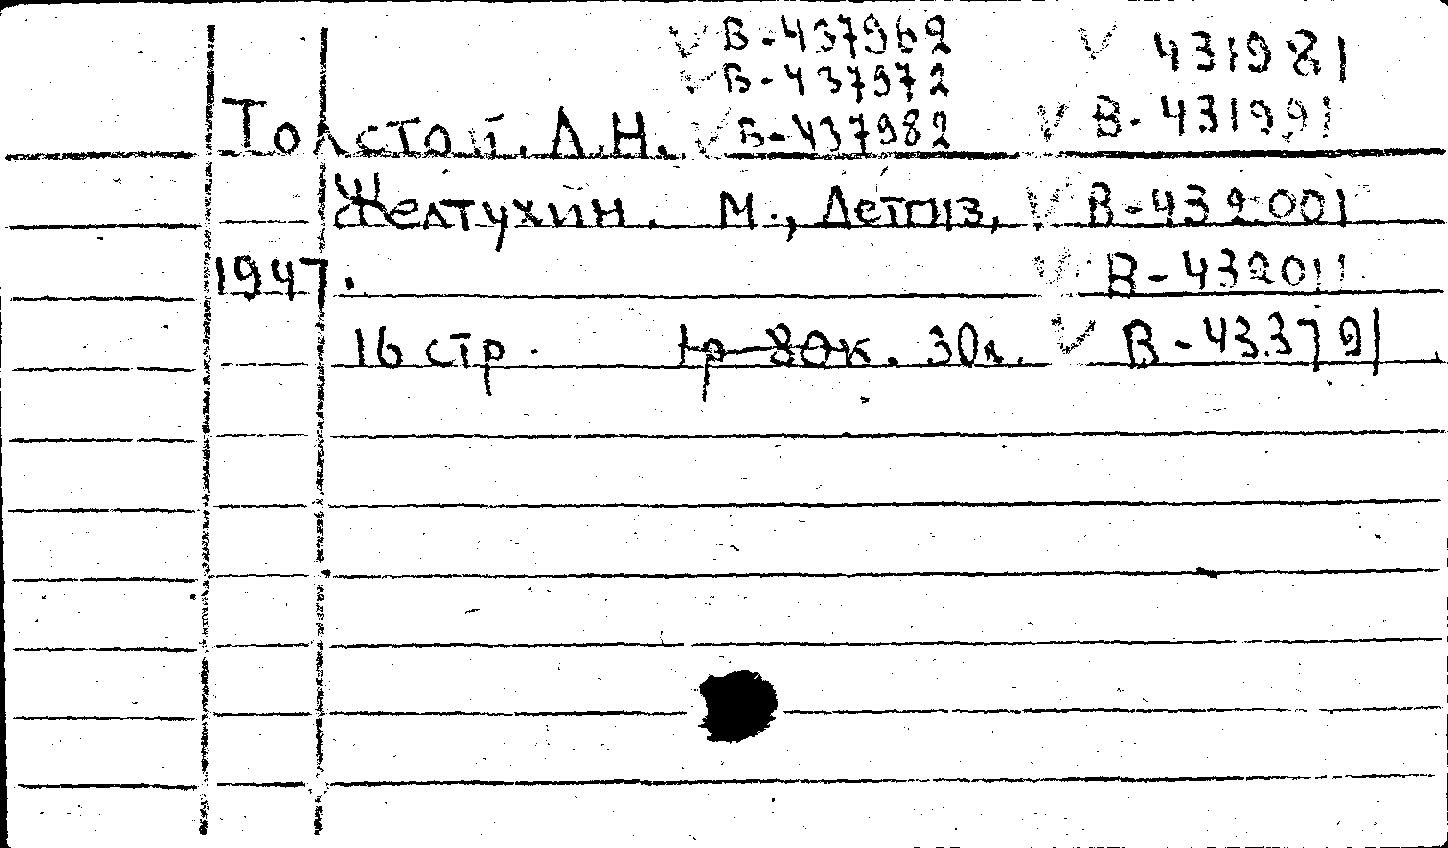 В-437962
В-437972
В-437982
431981
В-431991
Толстой. А.Н.
Желтухин. М., Детгиз, В-432001
1947. В-432011
16 стр. 1р 80к. 30л. В-433791